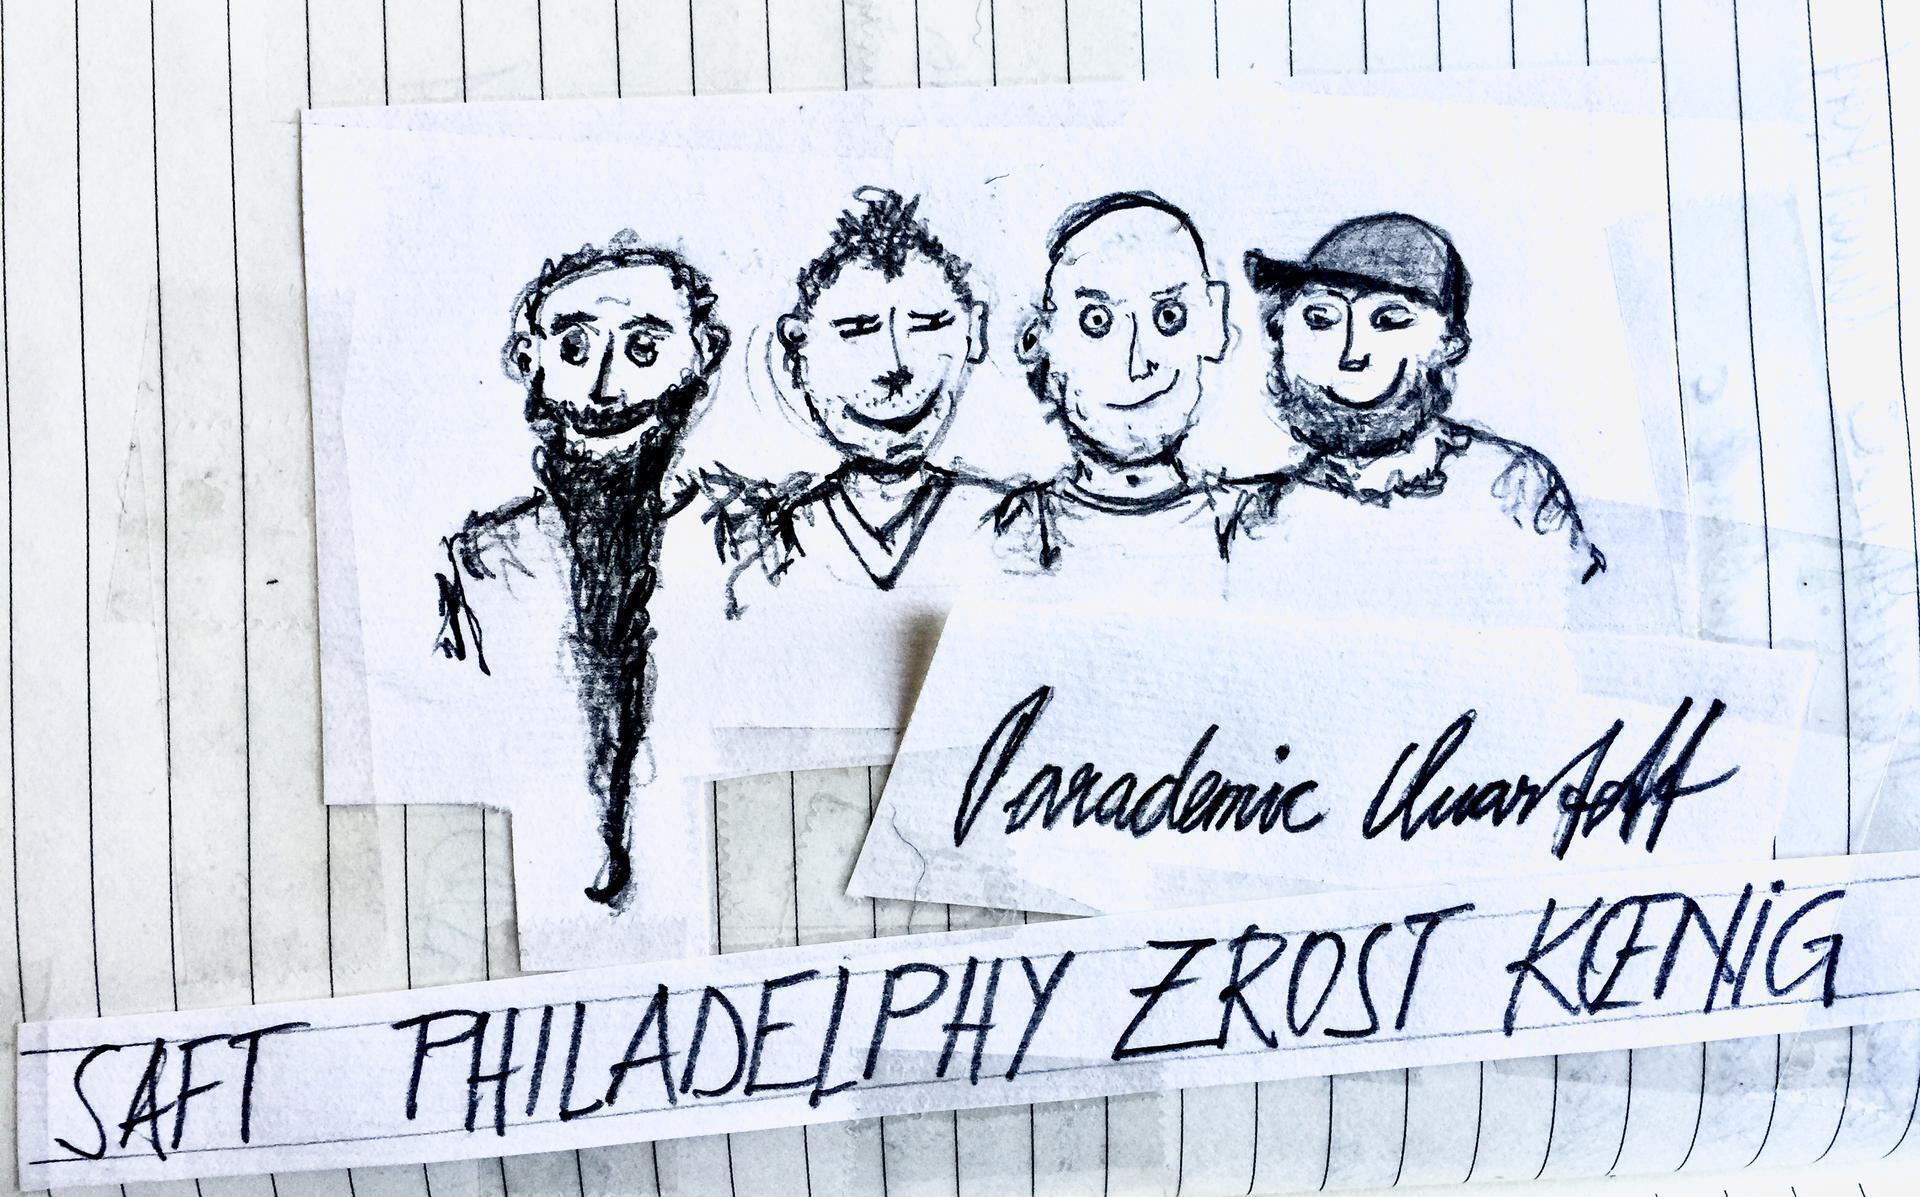 Parademic Quartett
SAFT PHILADELPHY ZROST KŒNiG